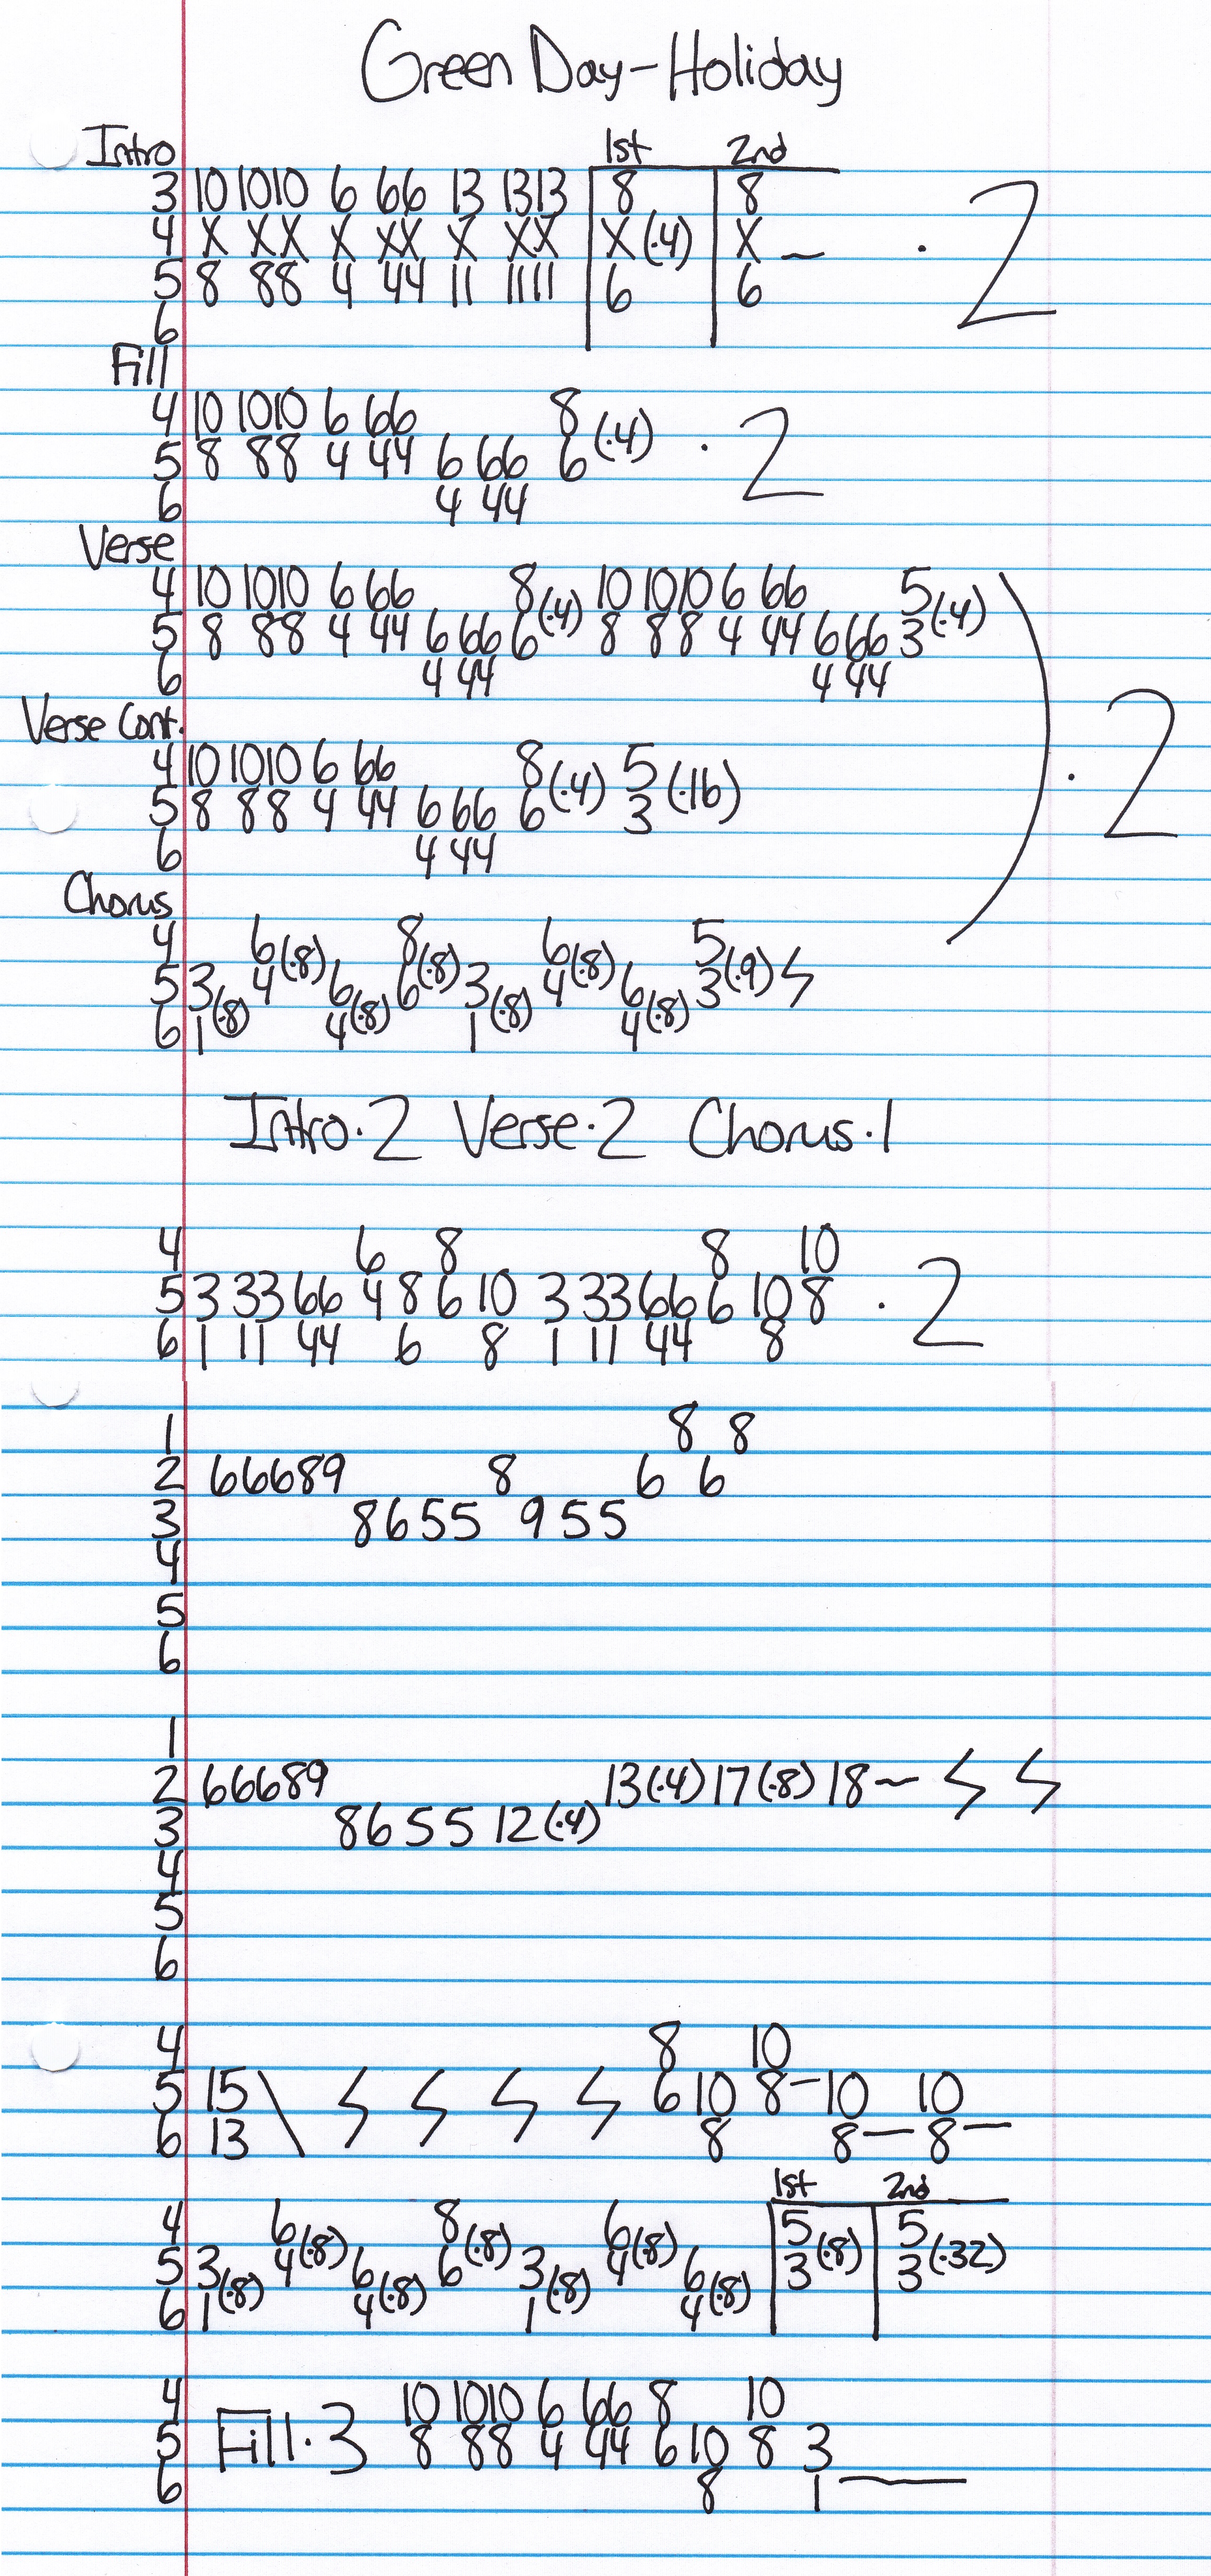 Green Day-Holiday
Intro 1st 2nd
3 10 1010 6 66 13 1313 8 8
4 X XX X XX X XX X(·4) X ~ · 2
5 8 88 4 44 11 1111 6 6
6
Fill
4 10 1010 6 66 8
5 8 88 4 44 6 66 6 (·4) · 2
6 4 44
Verse
4 10 1010 6 66 8(·4) 10 1010 6 66 5(·4)
5 8 88 4 44 6 66 6 8 88 4 44 6 66 3
6 4 44 4 44
· 2
Verse Cont.
4 10 1010 6 66 8(·4) 5(·16)
5 8 88 4 44 6 66 6 3
6 4 44
Chorus
4 6(·8) 8(·8) 6(·8) 5(·9)
5 3(·8) 4 6(·8) 6 3(·8) 4 6(·8) 3
6 1 4 1 4
Intro·2 Verse·2 Chorus·1
4 6 8 8 10
5 3 33 66 4 8 6 10 3 33 66 6 10 8 · 2
6 1 11 44 6 8 1 11 44 8
1 8 8
2 66689 8 6 6
3 8655 955
4
5
6
1
2 66689 13(·4) 17(·8) 18~
3 8655 12(·4)
4
5
6
4 8 10
5 15 6 10 8- 10 10
6 13 8 8- 8-
1st 2nd
4 6(·8) 8(·8) 6(·8) 5(·8) 5(·32)
5 3(·8) 4 6(·8) 6 3(·8) 4 6(·8) 3 3
6 1 4 1 4
4 10 1010 6 66 8 10
5 Fill·3 8 88 4 44 6 10 8 3
6 8 1—